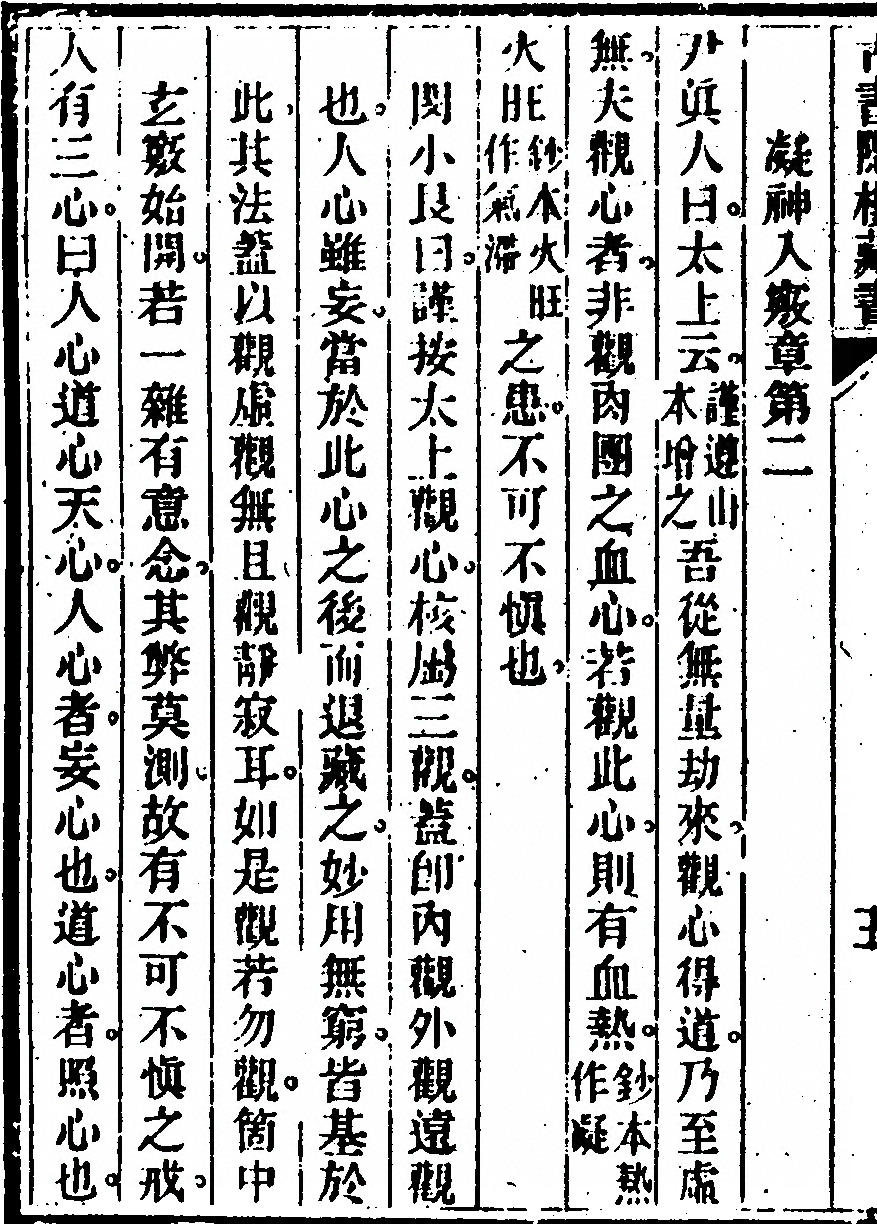 古書隱樓藏書
凝神入竅章第二
尹眞人曰。太上云。謹遵山本增之吾從無量劫來。觀心得道。乃至虛
無。夫觀心者。非觀肉團之血心。若觀此心。則有血熱。鈔本熱作凝
火旺鈔本火旺作氣滯之患。不可不愼也。
閔小艮曰。謹按太上觀心。核屬三觀。蓋卽內觀外觀遠觀
也。人心雖妄。當於此心之後而退藏之。妙用無窮。皆基於
此。其法蓋以觀虛觀無且觀靜寂耳。如是觀若勿觀。箇中
玄竅始開。若一雜有意念。其弊莫測。故有不可不愼之戒。
人有三心。曰人心道心天心。人心者。妄心也。道心者。照心也。